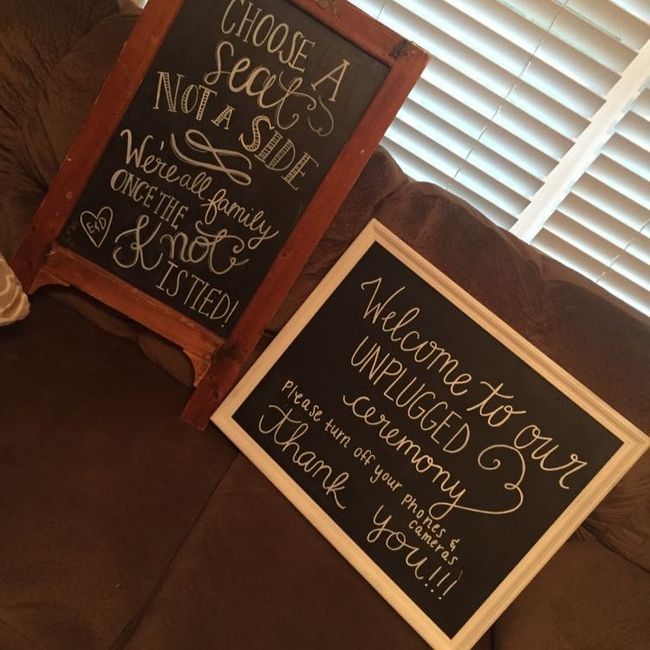 CHOOSE A
Seat
NOT A SIDE
We're all family
ONCE THE
Knot
IS TIED!
E&D
Welcome to our
UNPLUGGED
ceremony
Please turn off your phones &
cameras
thank you!!!